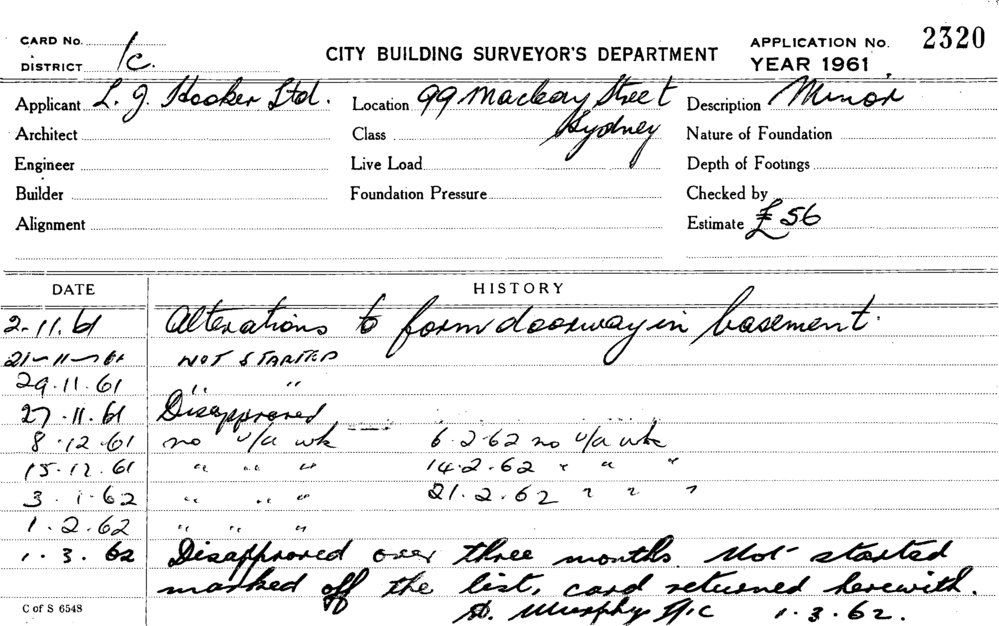 CARD No.
DISTRICT 1c.
CITY BUILDING SURVEYOR'S DEPARTMENT
APPLICATION No. 2320
YEAR 1961
Applicant L. J. Hooker Ltd. Location 99 Macleay Street Sydney Description Minor
Architect Class Nature of Foundation
Engineer Live Load Depth of Footings
Builder Foundation Pressure Checked by
Alignment Estimate £56
DATE HISTORY
2-11.61 Alterations to form doorway in basement.
21-11-61 NOT STARTED
29.11.61 " "
27.11.61 Disapproved
8.12.61 no u/a wk 6.2.62 no u/a wk
15.12.61 " " " 14.2.62 " " "
3.1.62 " " " 21.2.62 " " "
1.2.62 " " "
1.3.62 Disapproved over three months. Not started
marked off the list, card returned herewith.
Murphy 1.3.62.
C of S 6548